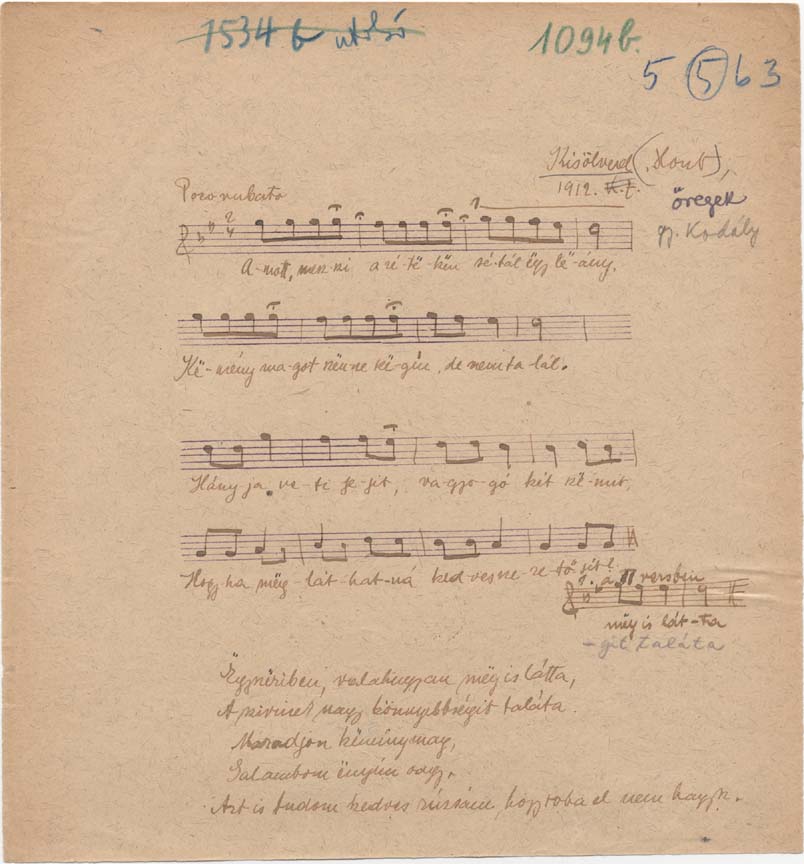 1534 b utolsó
1094b.
5 5 6 3
Kisölved (Hont),
1912. K.Z.
öregek
gy. Kodály
Poco rubato
2
4
1
A-mott, mesz-szi a ré-të-kën sé-tál ëgy lë-ány.
Kë-mény ma-got szën-ne kë-gin, de nem ta-lál.
Hány-ja, ve-ti je-jit, va-gyo-gó két szë-mit,
Hogy ha mëg-lát-hat-ná ked-ves sze-re-tő-jit!
1. a II versben
mëg is lát-ta
-git taláta
Ëgyszëriben, valahugyan mëg is látta,
A szivinek nagy könnyebbségit taláta.
Maradjon keménymag,
Galambom ënyim vagy,
Azt is tudom kedves rúzsám, hogy soha el nem hagysz.